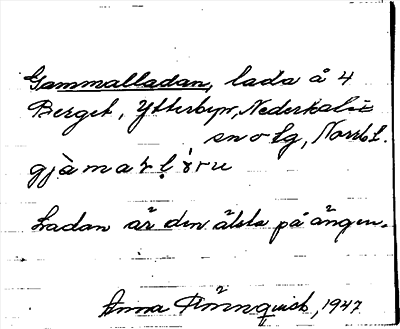 Gammalladan, lada å 4
Berget, Ytterbyn, Nederkalix
sn o lg, Norrb. l.
gjàmarḷòru
Ladan är den älsta på ängen.
Anna 1947